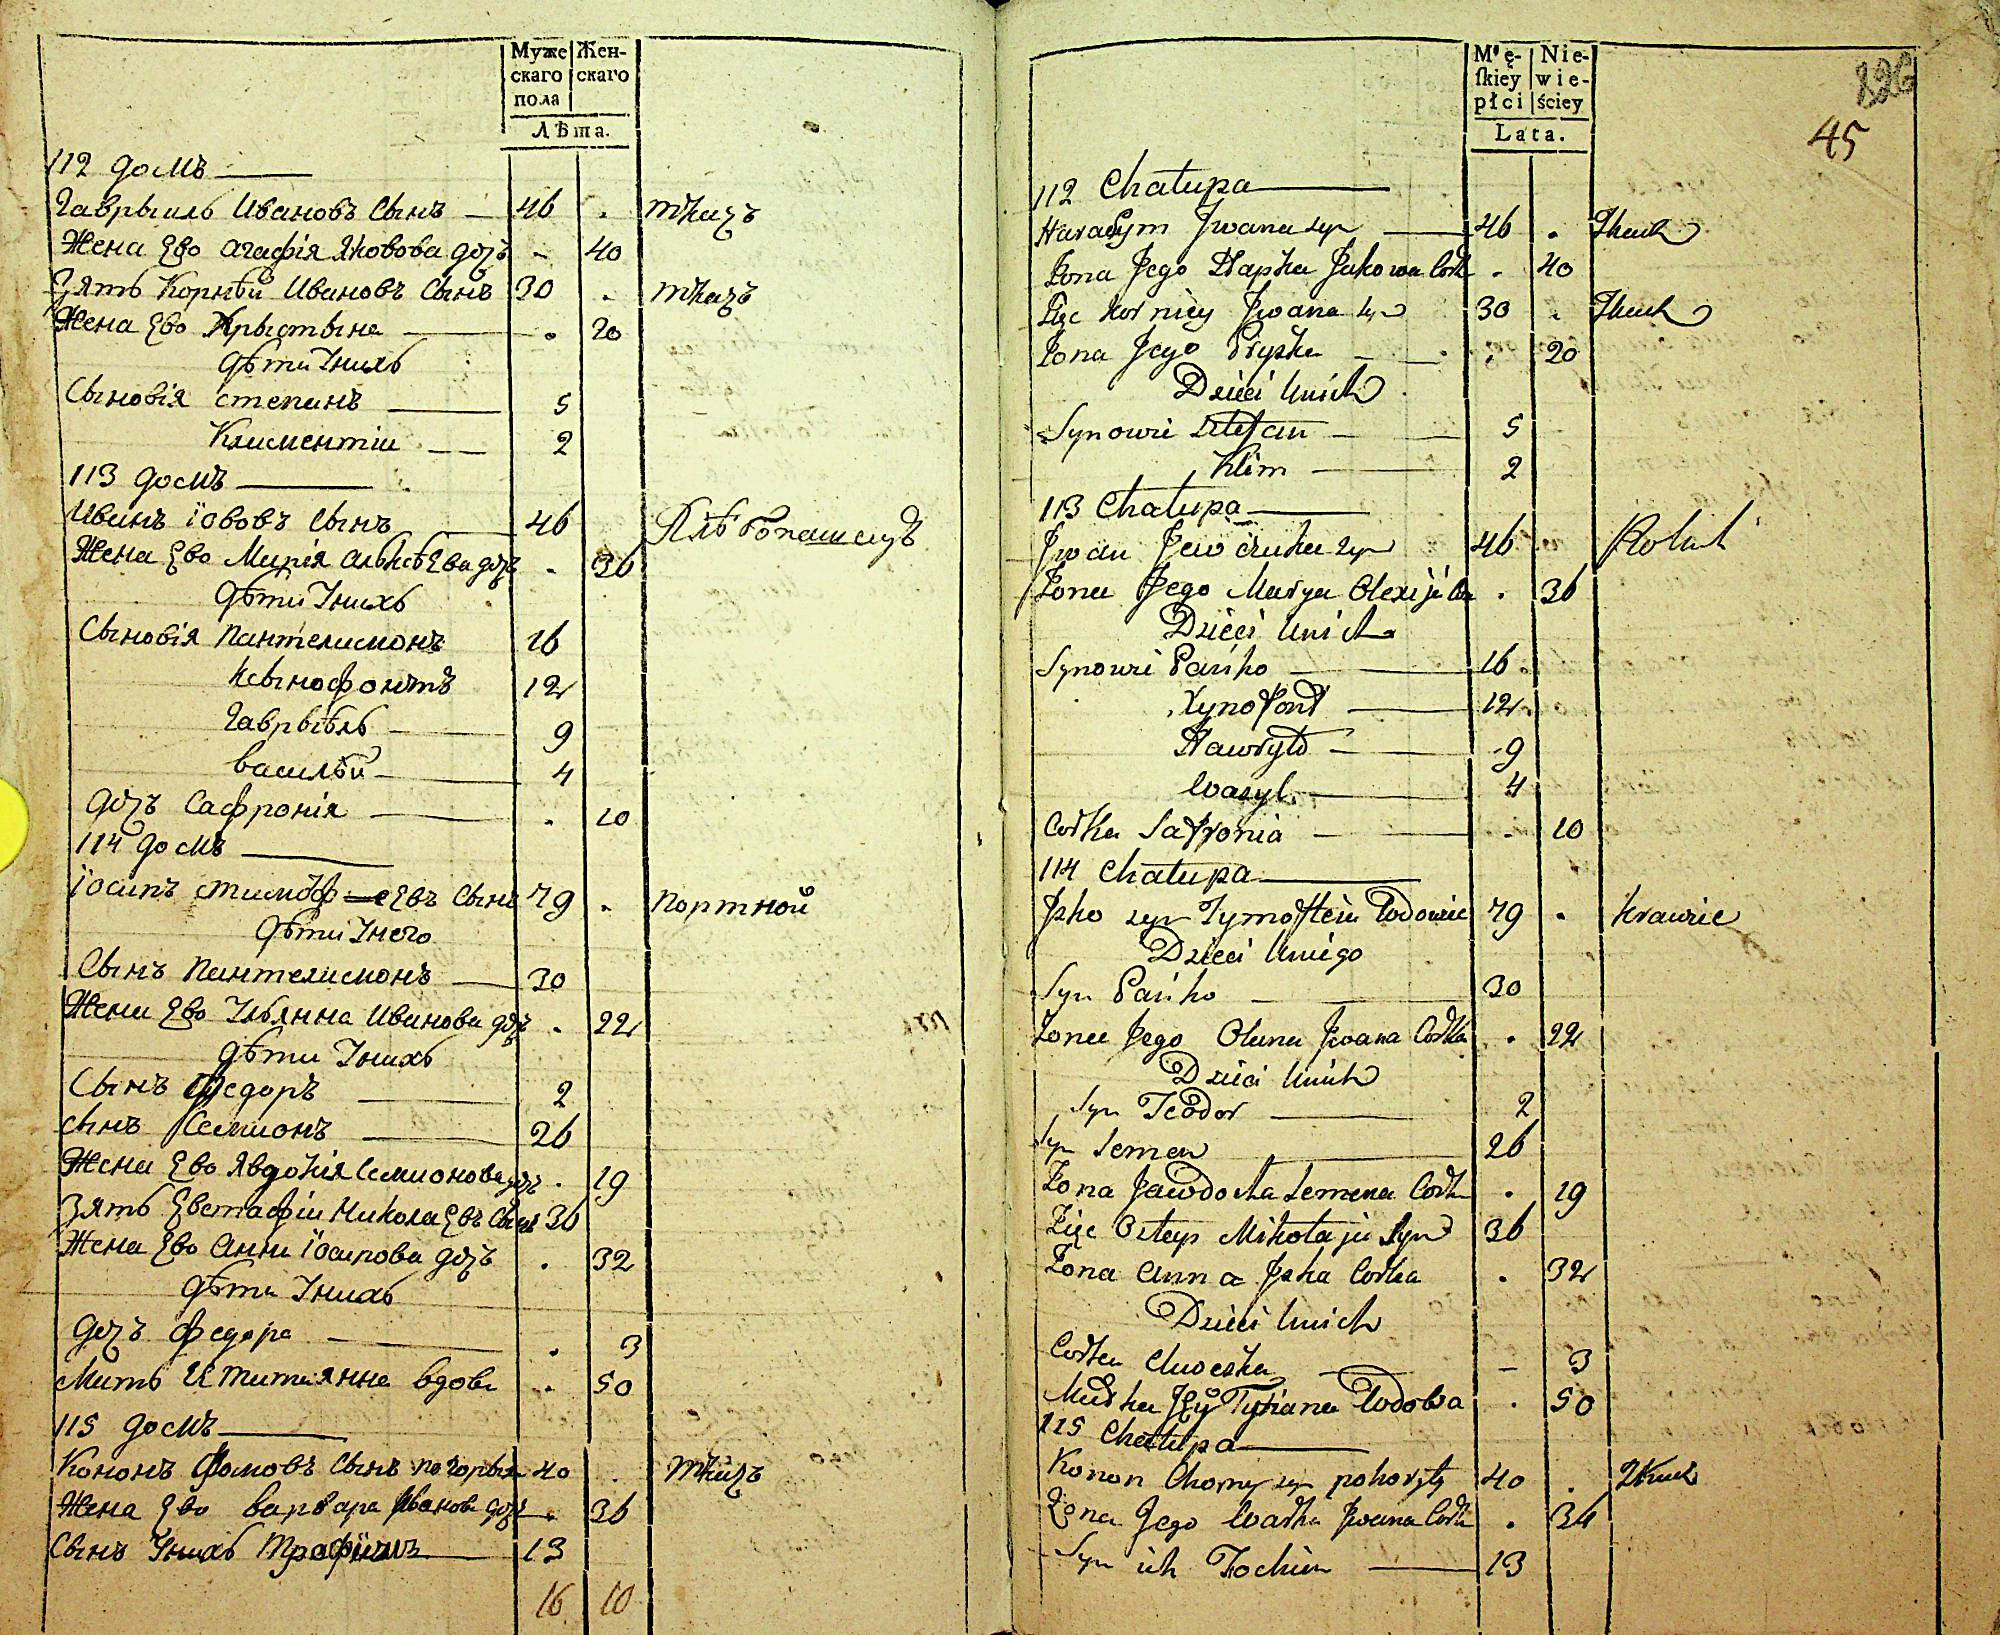 Муже Жен-
скаго скаго
пола
Лѣта.
112 домъ
Гаврыилъ Ивановъ Сынъ 46 . ткачъ
Жена Ево Агафія Яковова дочъ - 40
Зять Корнѣй Ивановъ Сынъ 30 . ткачъ
Жена Ево Хрыстына . 20
Дѣти Унихъ
Сыновія Степанъ 5
Климентіи 2
113 домъ
Иванъ Іововъ Сынъ 46 Хлѣбопашецъ
Жена Ево Марія Алексѣева дочъ . 36
Дѣти Унихъ
Сыновія Пантелимонъ 16
Ксынофонтъ 12
Гаврыѣлъ 9
Василѣй 4
Дочъ Сафронія . 10
114 домъ
Іосипъ Тимофеевъ Сынъ 79 . Портной
Дѣти Унего
Сынъ Пантелимонъ 30
Жена Ево Ульянна Иванова дочъ . 22
Дѣти Унихъ
Сынъ Федоръ 2
Сынъ Семионъ 26
Жена Ево Явдокія Семионова дочъ . 19
Зять Евстафіи Николаевъ Сынъ 36
Жена Ево Анна Іосипова дочъ . 32
Дѣти Унихъ
Дочъ Федора . 3
Мать Татиянна вдова . 50
115 домъ
Кононъ Фомовъ Сынъ 40 . ткачъ
Жена Ево Варвара Иванова дочъ . 36
Сынъ Унихъ Трофимъ 13
16 10
Mę- Nie-
skiey wie-
płci ściey
Lata.
826
45
112 Chałupa
Iwana syn 46 . Tkacz
Żona Jego Hapka Jakowa Cork . 40
Zięc Korniey Iwana syn 30 . Tkacz
Żona Jego Pryska . 20
Dzieci Unich
Synowie Stefan 5
Klim 2
113 Chałupa
Iwan Jewczuka syn 46 Rolnik
Żona Jego Marya Olexija . 36
Dzieci Unich
Synowie Pańko 16
Xynofont 12
Hawryło 9
Wasyl 4
Corka Safronia 10
114 Chałupa
Jsko syn Tymofteia Wdowiec 79 . Krawiec
Dzieci Uniego
Syn Pańko 30
Żona Jego Olana Iwana Corka . 22
Dzieci Unich
Syn Teodor 2
Syn Semen 26
Żona Jawdocha Semena Cork . 19
Zięc Ostep Mikołaja Syn 36
Żona Anna Jska Corka . 32
Dzieci Unich
Corka - 3
Matka Jey Tytiana Wdowa . 50
115 Chałupa
Konon Chomy syn pohoryły 40 . Tkacz
Żona Jego Warka Iwana Cork . 34
Syn ich 13